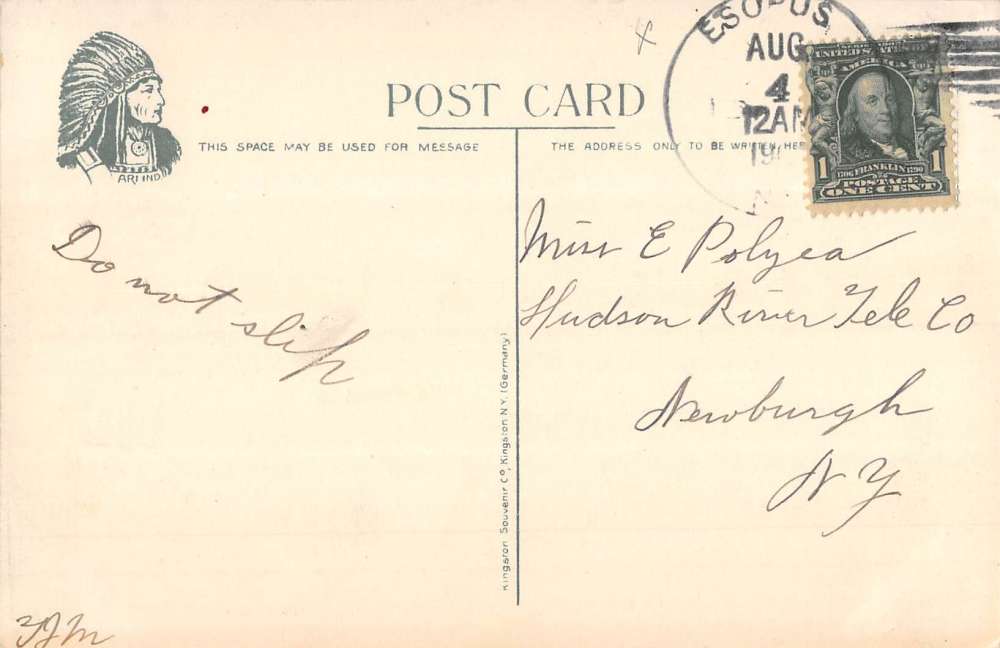 ESOPUS
AUG
4
12AM
POST CARD
THIS SPACE MAY BE USED FOR MESSAGE
THE ADDRESS ONLY TO BE WRITTEN HERE
SERIES 1902
UNITED STATES OF
AMERICA
1 1
1706 FRANKLIN 1790
POSTAGE
ONE CENT
Do not slip
Miss E Polyea
Hudson River Tele Co
Newburgh
N Y
Kingston Souvenir Co, Kingston N.Y. (Germany)